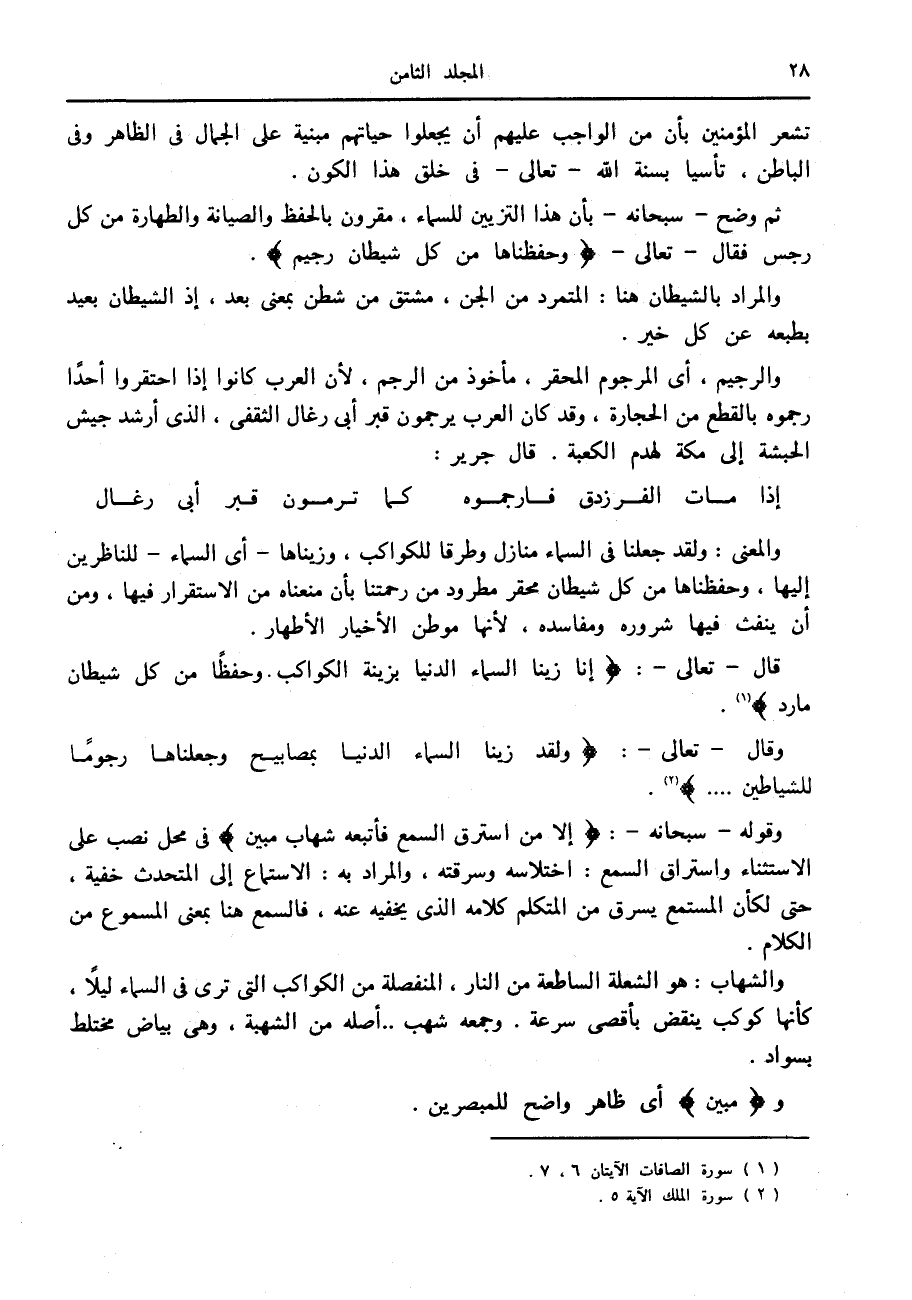 ٢٨ المجلد الثامن
تشعر المؤمنين بأن من الواجب عليهم أن يجعلوا حياتهم مبنية على الجمال فى الظاهر وفى
الباطن ، تأسيا بسنة الله – تعالى – فى خلق هذا الكون .
ثم وضح – سبحانه – بأن هذا التزيين للسماء ، مقرون بالحفظ والصيانة والطهارة من كل
رجس فقال – تعالى – ﴿ وحفظناها من كل شيطان رجيم ﴾ .
والمراد بالشيطان هنا : المتمرد من الجن ، مشتق من شطن بمعنى بعد ، إذ الشيطان بعيد
بطبعه عن كل خير .
والرجيم ، أى المرجوم المحقر ، مأخوذ من الرجم ، لأن العرب كانوا إذا احتقروا أحدًا
رجموه بالقطع من الحجارة ، وقد كان العرب يرجمون قبر أبى رغال الثقفى ، الذى أرشد جيش
الحبشة إلى مكة لهدم الكعبة . قال جرير :
إذا مــات الفــرزدق فــارجمــوه كــما تــرمــون قــبر أبى رغــال
والمعنى : ولقد جعلنا فى السماء منازل وطرقا للكواكب ، وزيناها – أى السماء – للناظرين
إليها ، وحفظناها من كل شيطان محقر مطرود من رحمتنا بأن منعناه من الاستقرار فيها ، ومن
أن ينفث فيها شروره ومفاسده ، لأنها موطن الأخيار الأطهار .
قال – تعالى – : ﴿ إنا زينا السماء الدنيا بزينة الكواكب . وحفظًا من كل شيطان
مارد ﴾(١) .
وقال – تعالى – : ﴿ ولقد زينا السماء الدنيــا بمصابيــح وجعلناهــا رجومًــا
للشياطين .... ﴾(٢) .
وقوله – سبحانه – : ﴿ إلا من استرق السمع فأتبعه شهاب مبين ﴾ فى محل نصب على
الاستثناء واستراق السمع : اختلاسه وسرقته ، والمراد به : الاستماع إلى المتحدث خفية ،
حتى لكأن المستمع يسرق من المتكلم كلامه الذى يخفيه عنه ، فالسمع هنا بمعنى المسموع من
الكلام .
والشهاب : هو الشعلة الساطعة من النار ، المنفصلة من الكواكب التى ترى فى السماء ليلًا ،
كأنها كوكب ينقض بأقصى سرعة . وجمعه شهب ..أصله من الشهبة ، وهى بياض مختلط
بسواد .
و ﴿ مبين ﴾ أى ظاهر واضح للمبصرين .
( ١ ) سورة الصافات الآيتان ٦ ، ٧ .
( ٢ ) سورة الملك الآية ٥ .